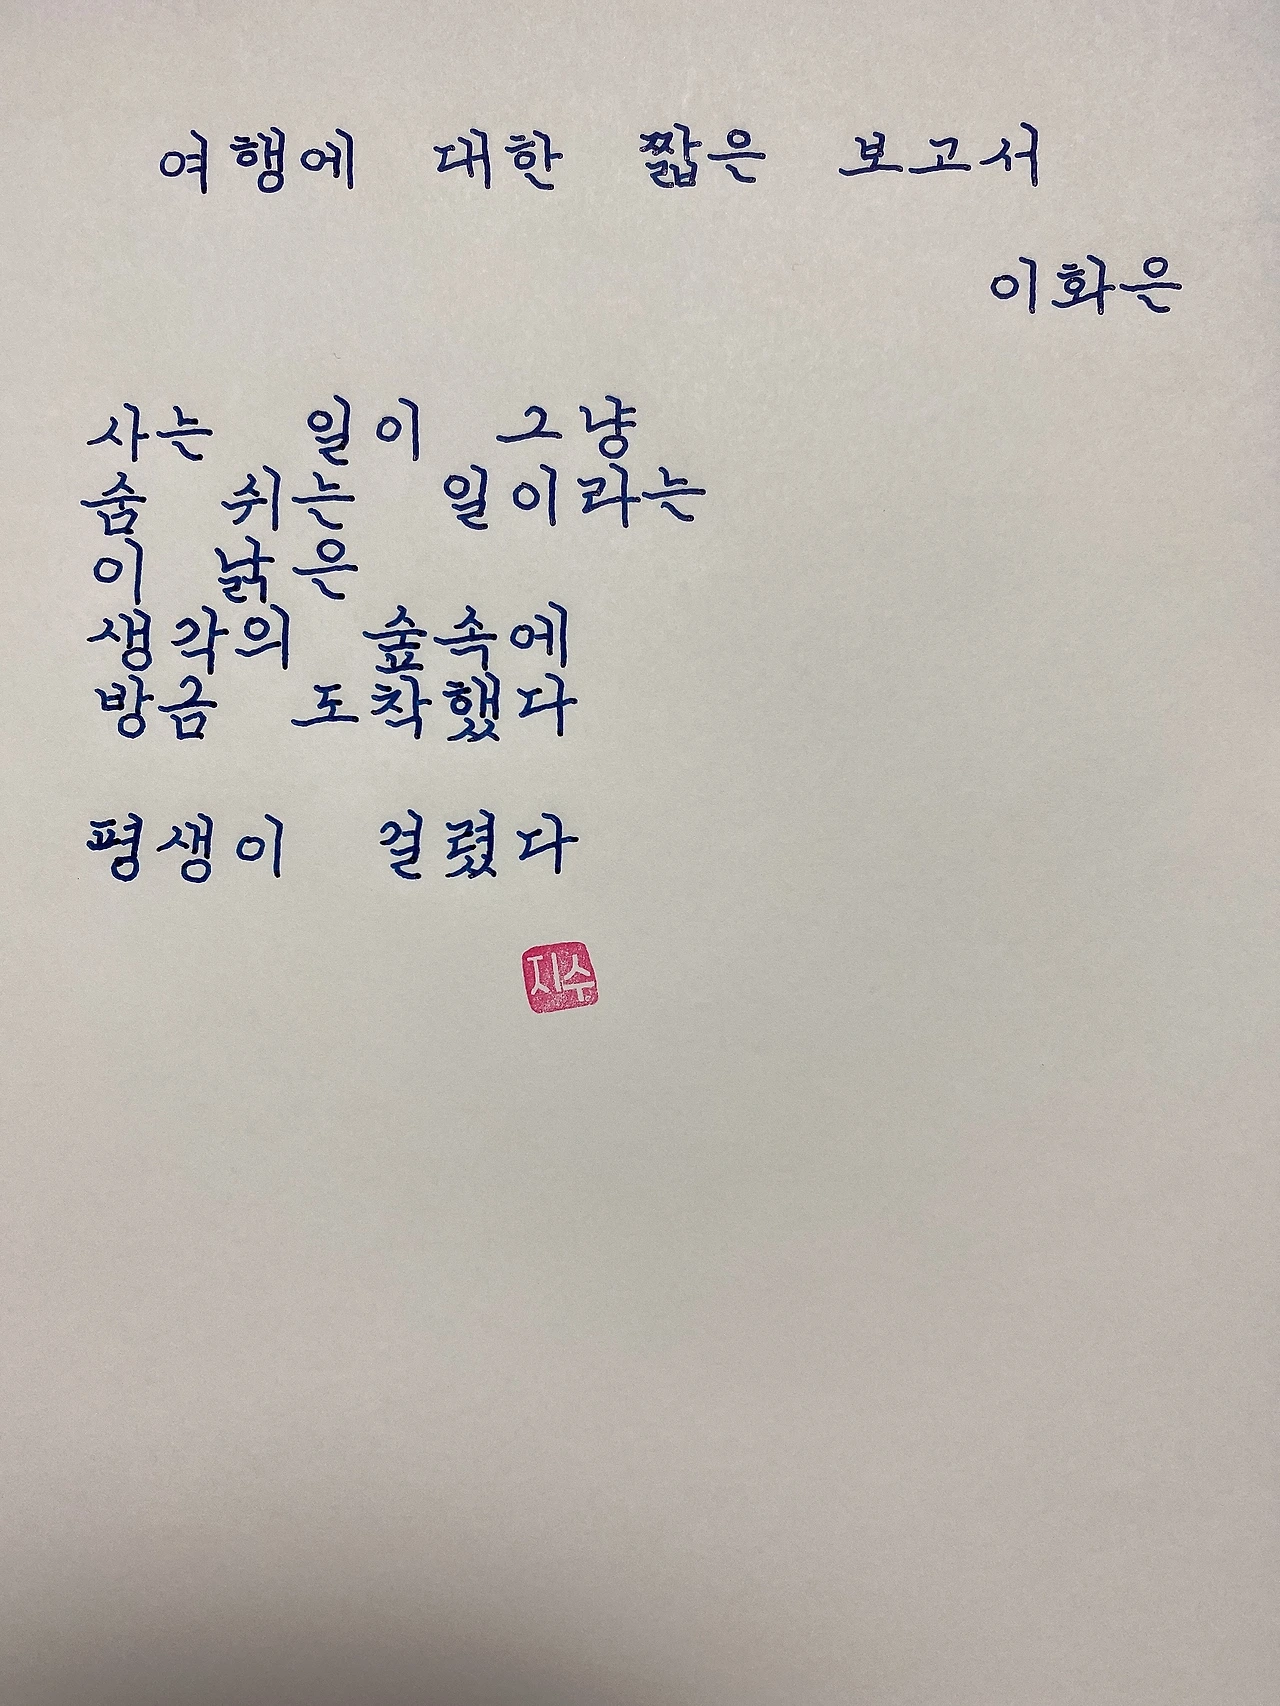 여행에 대한 짧은 보고서
이화은
사는 일이 그냥
숨 쉬는 일이라는
이 낡은
생각의 숲속에
방금 도착했다
평생이 걸렸다
지수